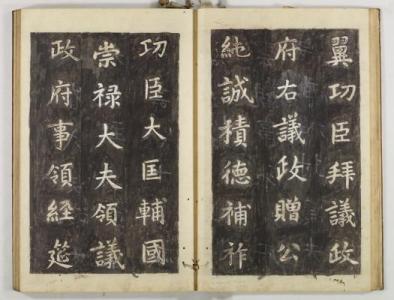 翼功臣拜議政
府右議政贈公
純誠積德補祚
功臣大匡輔國
崇禄大夫領議
政府事領經筵